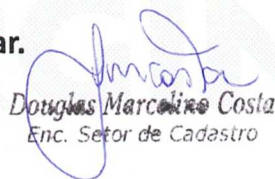 ar.
Douglas Marcelino Costa
Enc. Setor de Cadastro